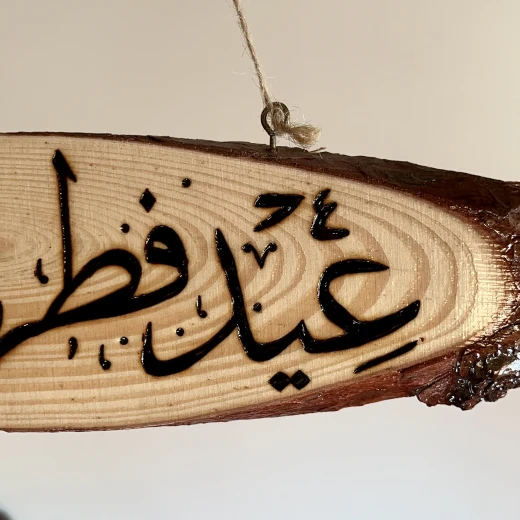 عيد فطر